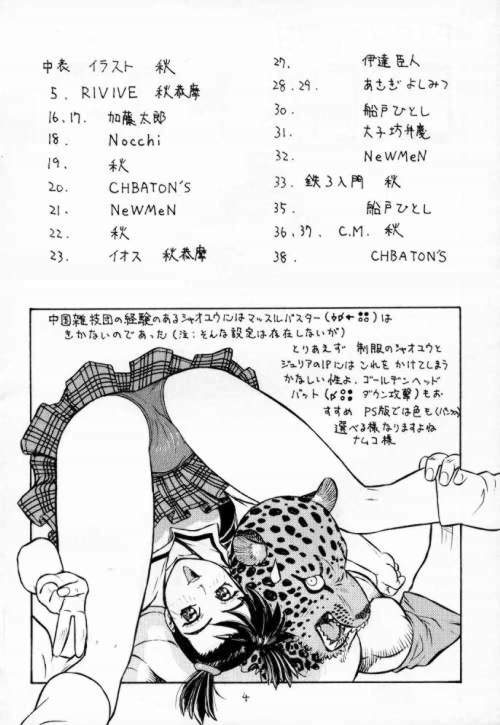 中表 イラスト 秋
5. RIVIVE 秋恭摩
16,17. 加藤太郎
18. Nocchi
19. 秋
20. CHBATON'S
21. NeWMeN
22. 秋
23. イオス 秋恭摩
27. 伊達臣人
28.29. あさぎよしみつ
30. 船戸ひとし
31. 太子坊弁慶
32. NeWMeN
33. 鉄3入門 秋
35. 船戸ひとし
36,37. C.M. 秋
38. CHBATON'S
中国雑技団の経験のあるシャオユウにはマッスルバスター( )は
きかないのであった(注:そんな設定は存在しないが)
とりあえず 制服のシャオユウと
ジュリアの1Pには これをかけてしまう
かなしい性よ、ゴールデンヘッド
バット( ダウン攻撃)もお
すすめ PS版では色も(パンツの)
選べる様なりますよね
ナムコ様
4